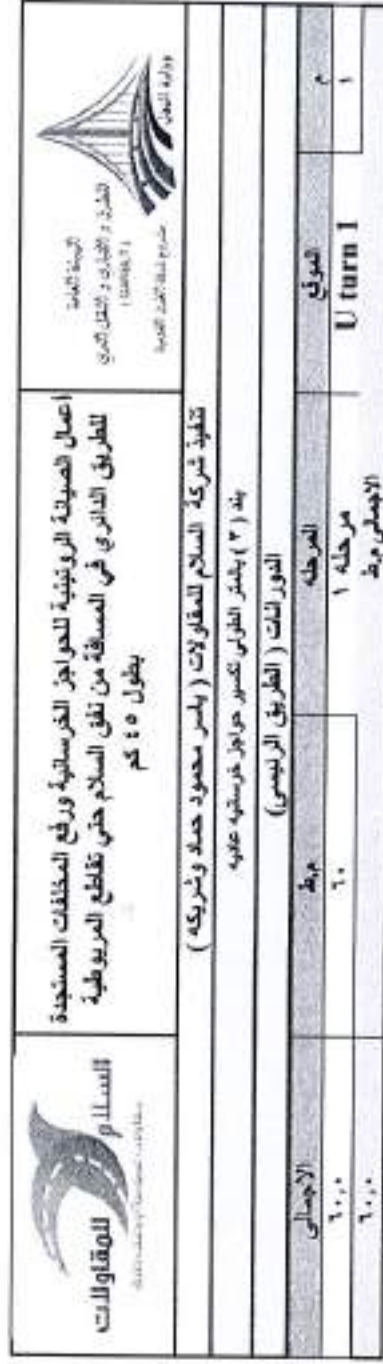 وزارة النقل
الهيئة العامة
للطرق و الكباري و النقل البري
(GARBLT)
أعمال الصيانة الروتينية للحواجز الخرسانية ورفع المخلفات المستجدة
للطريق الدائري في المسافة من نفق السلام حتي تقاطع المريوطية
بطول ٤٥ كم
السلام
للمقاولات
تنفيذ شركة السلام للمقاولات ( ياسر محمود حماد وشريكه )
بند ( ٣ ) بالمتر الطولي تكسير حواجز خرسانيه عاديه
الدورانات ( الطريق الرئيسى)
م الموقع المرحله م.ط الاجمالى
١ U turn 1 مرحله ١ ٦٠ ٦٠,٠
الاجمالى م.ط ٦٠,٠